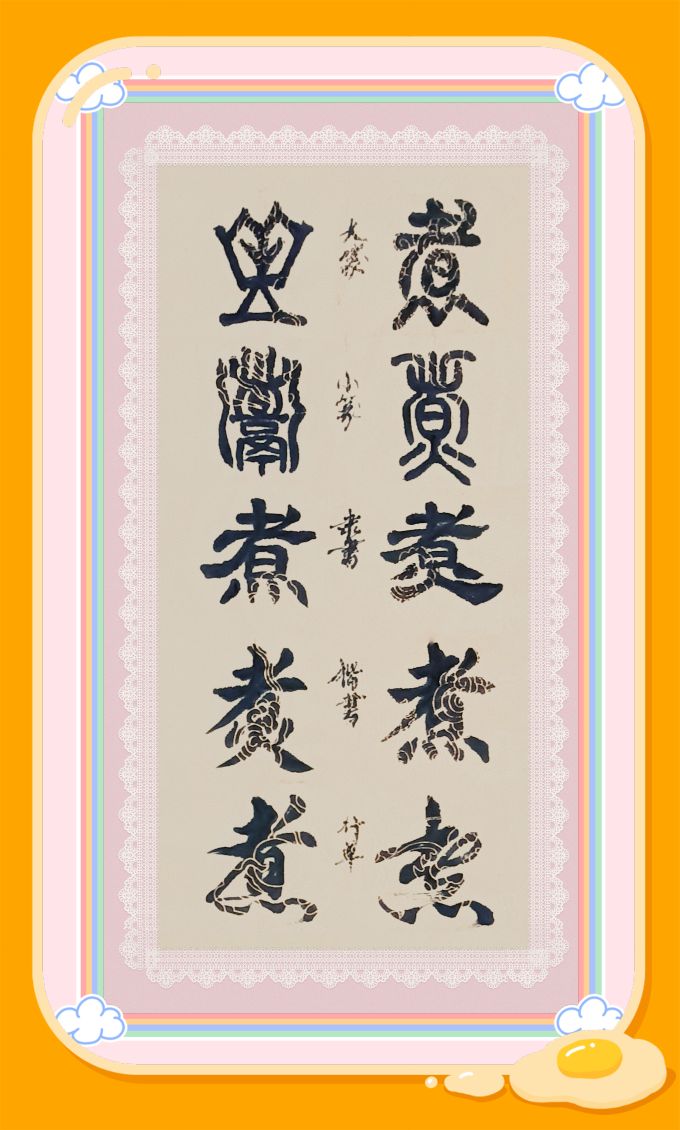 煮煮煮煮煮
大篆 小篆 隶書 楷書 行草
煮煮煮